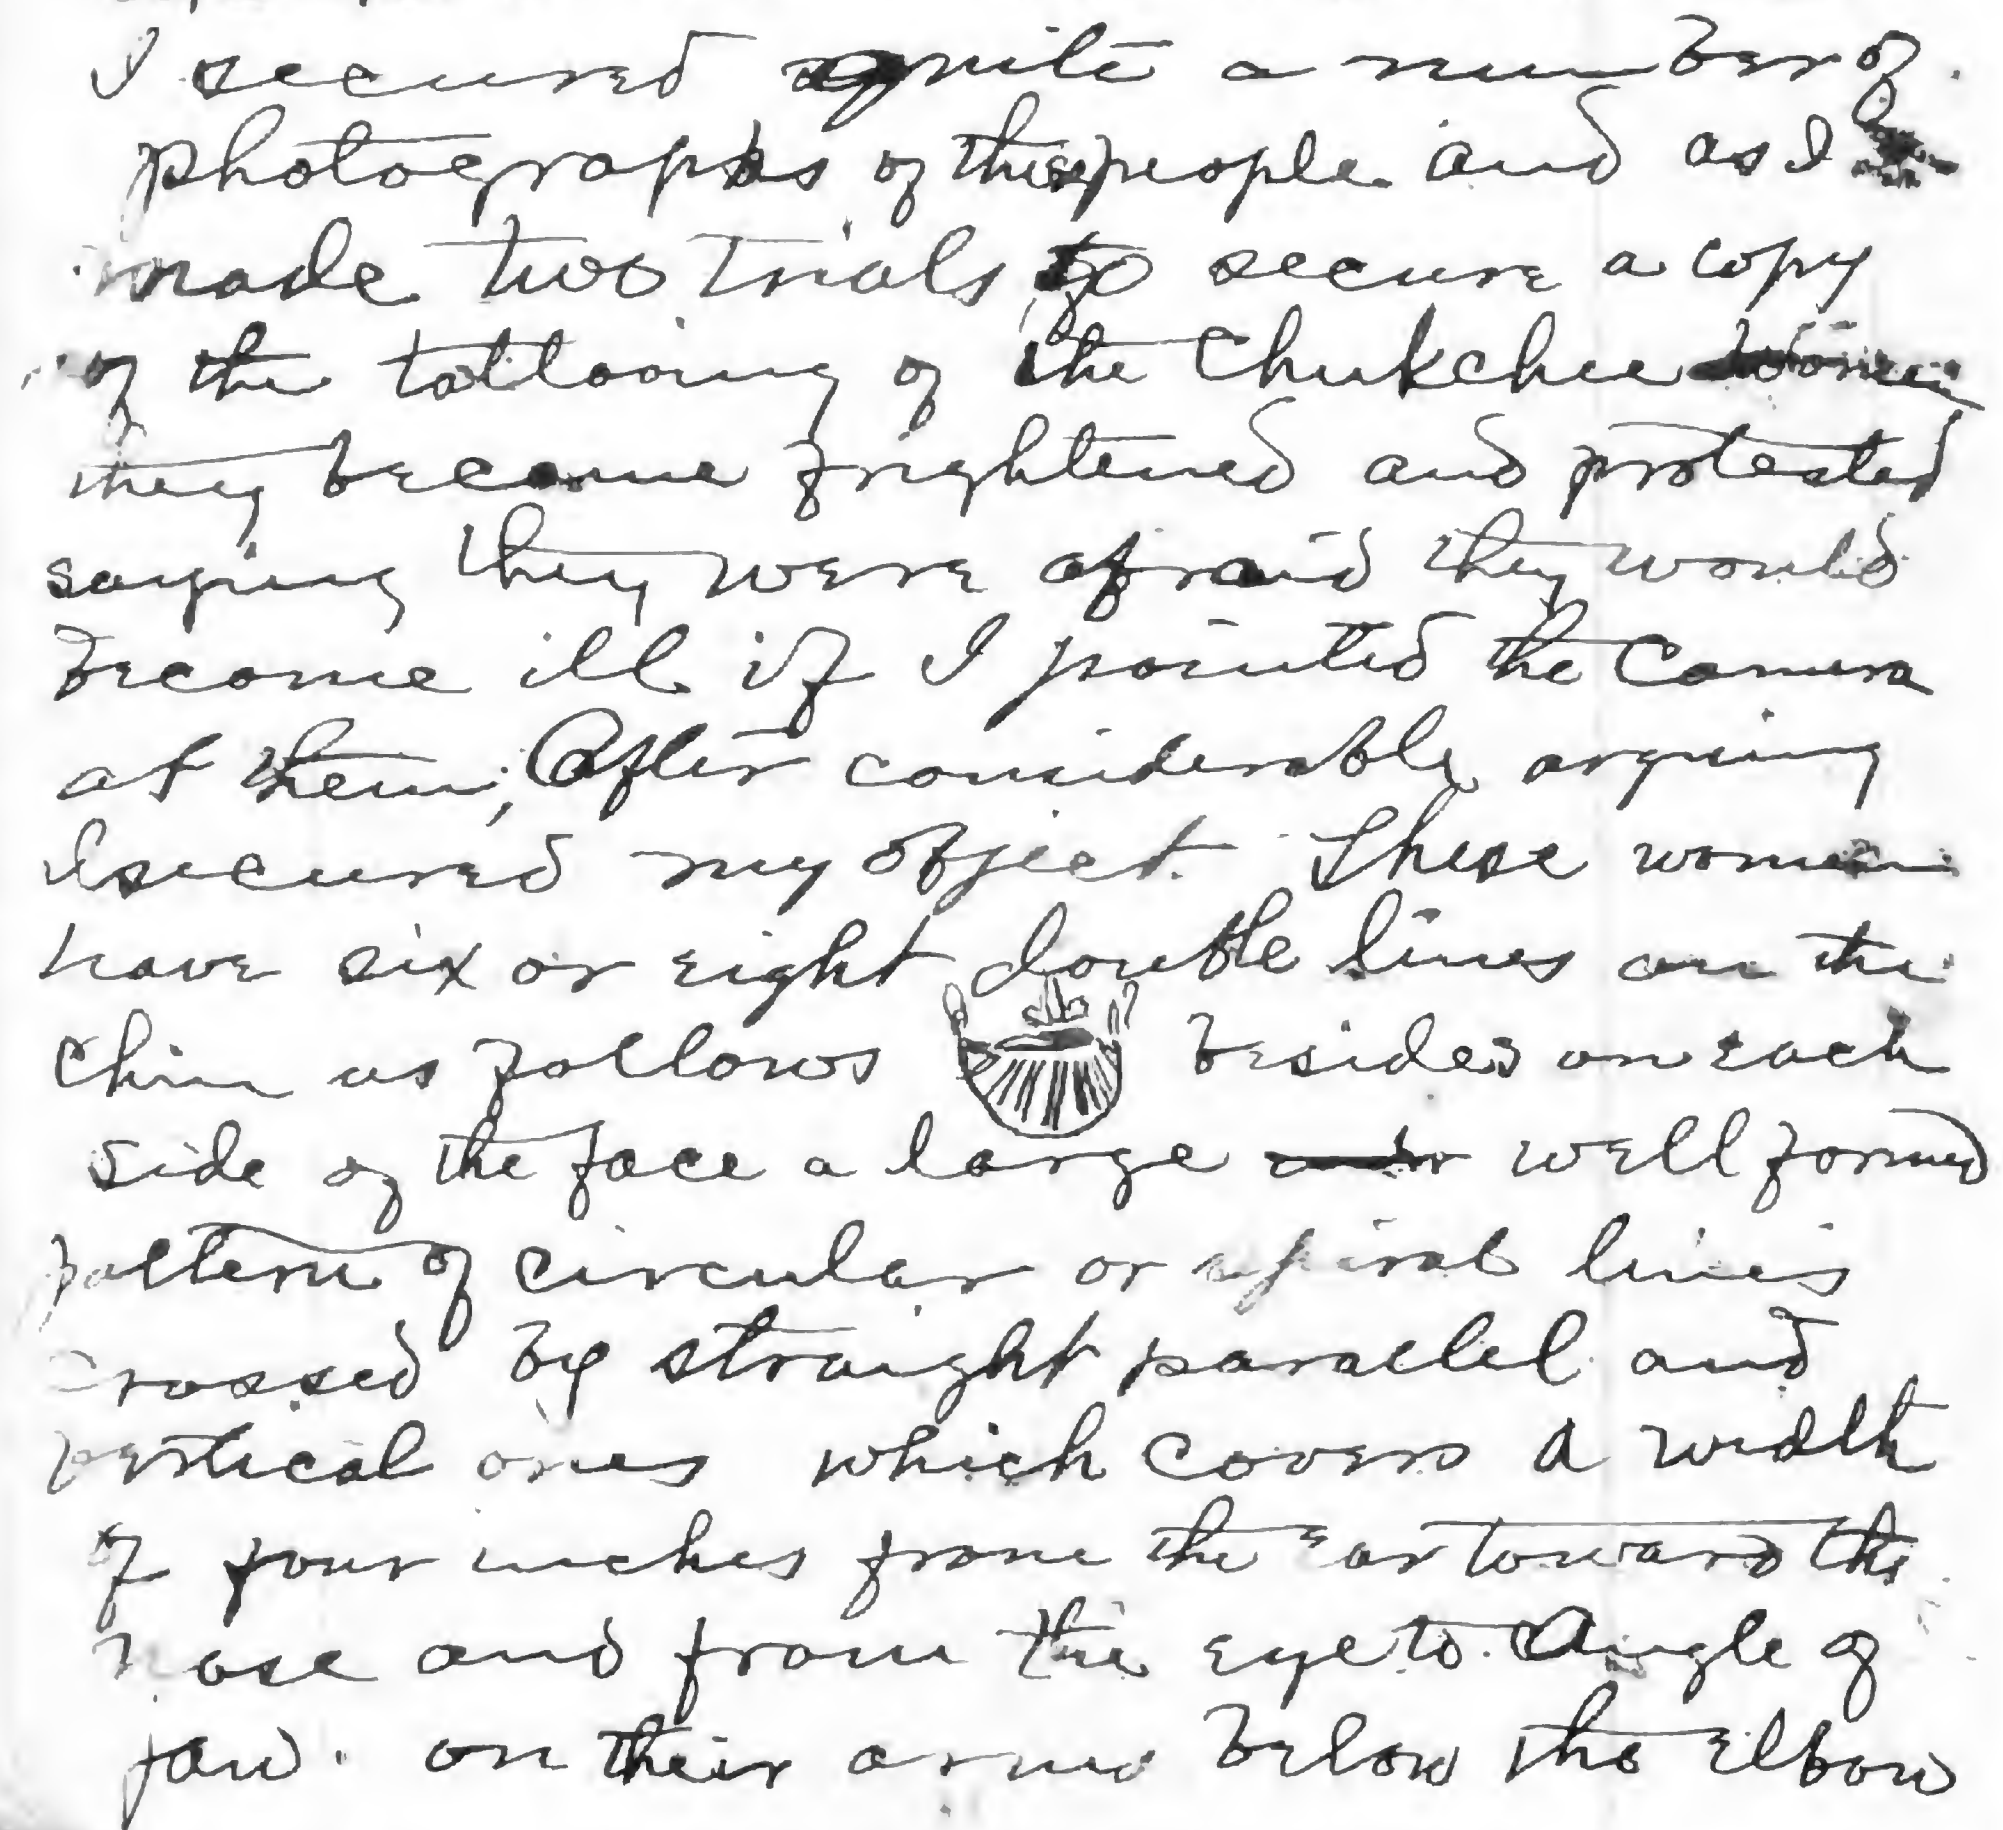 I secured quite a number of
photographs of these people and as I
made two trials to secure a copy
of the tattooing of the Chukchee women
they became frightened and protested
saying they were afraid they would
become ill if I pointed the Camera
at them, After considerable arguing
I secured my object. These women
have six or eight double lines on the
Chin as follows besides on each
side of the face a large well formed
pattern of circular or spiral lines
crossed by straight parallel and
vertical ones which covers a width
of four inches from the ear toward the
nose and from the eye to Angle of
jaw. on their arms below the elbow